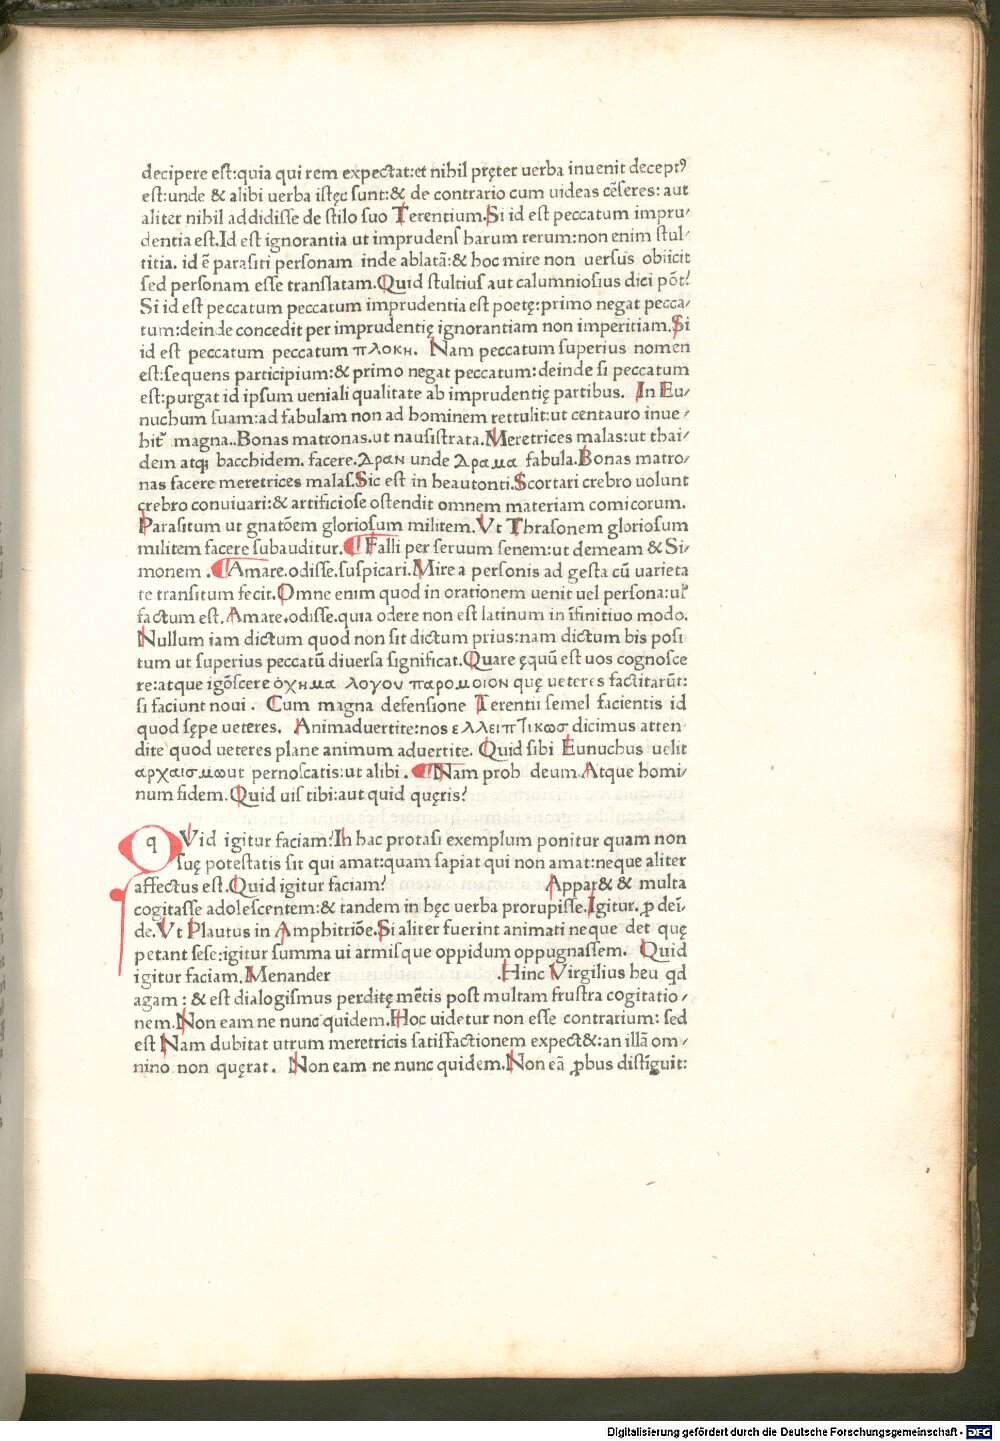 decipere est:quia qui rem expectat:et nihil pręter uerba inuenit deceptꝰ
est:unde & alibi uerba istęc sunt:& de contrario cum uideas cẽseres: aut
aliter nihil addidisse de stilo suo Terentium.Si id est peccatum impru⸗
dentia est.Id est ignorantia ut imprudens harum rerum:non enim stul⸗
titia. id ẽ parasiti personam inde ablatã:& hoc mire non uersus obiicit
sed personam esse translatam.Quid stultius aut calumniosius dici põt?
Si id est peccatum peccatum imprudentia est poetę:primo negat pecca⸗
tum:deinde concedit per imprudentię ignorantiam non imperitiam.Si
id est peccatum peccatum πλοκη. Nam peccatum superius nomen
est:sequens participium:& primo negat peccatum:deinde si peccatum
est:purgat id ipsum ueniali qualitate ab imprudentię partibus. In Eu⸗
nuchum suam:ad fabulam non ad hominem rettulit:ut centauro inue⸗
hit᷑ magna..Bonas matronas.ut nausistrata.Meretrices malas:ut thai⸗
dem atqꝫ bacchidem. facere.Δραν unde Δραμα fabula.Bonas matro⸗
nas facere meretrices malas.Sic est in heautonti.Scortari crebro uolunt
crebro conuiuari:& artificiose ostendit omnem materiam comicorum.
Parasitum ut gnatõem gloriosum militem.Vt Thrasonem gloriosum
militem facere subauditur.¶Falli per seruum senem:ut demeam & Si⸗
monem .¶Amare.odisse.suspicari.Mire a personis ad gesta cũ uarieta
te transitum fecit.Omne enim quod in orationem uenit uel persona:ul᷑
factum est.Amare.odisse.quia odere non est latinum in ĩfinitiuo modo.
Nullum iam dictum quod non sit dictum prius:nam dictum bis posi
tum ut superius peccatũ diuersa significat.Quare ęquũ est uos cognosce
re:atque igõscere όχημα λογου παρομοιον quę ueteres factitarũt:
si faciunt noui . Cum magna defensione Terentii semel facientis id
quod sępe ueteres. Animaduertite:nos ελλειπτικωσ dicimus atten
dite quod ueteres plane animum aduertite. Quid sibi Eunuchus uelit
αρχαισμωut pernoscatis:ut alibi .¶Nam proh deum.Atque homi⸗
num fidem.Quid uis tibi:aut quid quęris?
qVid igitur faciam?In hac protasi exemplum ponitur quam non
suę potestatis sit qui amat:quam sapiat qui non amat:neque aliter
affectus est.Quid igitur faciam? Appar& & multa
cogitasse adolescentem:& tandem in hęc uerba prorupisse.Igitur. ꝓ deĩ⸗
de.Vt Plautus in Amphitriõe.Si aliter fuerint animati neque det quę
petant sese:igitur summa ui armisque oppidum oppugnassem. Quid
igitur faciam.Menander .Hinc Virgilius heu qd
agam : & est dialogismus perditę mẽtis post multam frustra cogitatio⸗
nem.Non eam ne nunc quidem.Hoc uidetur non esse contrarium: sed
est Nam dubitat utrum meretricis satisfactionem expect&:an illã om⸗
nino non quęrat. Non eam ne nunc quidem.Non eã ꝓbus distĩguit:
Digitalisierung gefördert durch die Deutsche Forschungsgemeinschaft - DFG